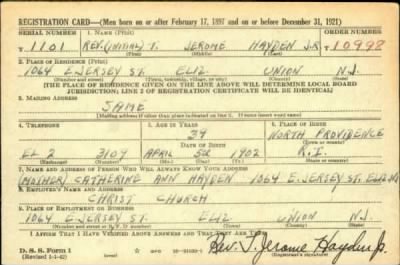 REGISTRATION CARD—(Men born on or after February 17, 1897 and on or before December 31, 1921)
SERIAL NUMBER 1. NAME (Print) ORDER NUMBER
T 1101 REV. (INITIAL) T. JEROME HAYDEN JR. T 10998
2. PLACE OF RESIDENCE (Print)
1064 E. JERSEY ST. ELIZ. UNION N.J.
[THE PLACE OF RESIDENCE GIVEN ON THE LINE ABOVE WILL DETERMINE LOCAL BOARD
JURISDICTION; LINE 2 OF REGISTRATION CERTIFICATE WILL BE IDENTICAL]
3. MAILING ADDRESS
SAME
[Mailing address if other than place indicated on line 2. If same insert word same]
4. TELEPHONE 5. AGE IN YEARS 6. PLACE OF BIRTH
39 NORTH PROVIDENCE
DATE OF BIRTH
EL 2 3109 APRIL 5th 1902 R.I.
7. NAME AND ADDRESS OF PERSON WHO WILL ALWAYS KNOW YOUR ADDRESS
(MOTHER) CATHERINE ANN HAYDEN 1064 E. JERSEY ST. ELIZ. NJ
8. EMPLOYER'S NAME AND ADDRESS
CHRIST CHURCH
9. PLACE OF EMPLOYMENT OR BUSINESS
1064 E. JERSEY ST. ELIZ UNION N.J.
I AFFIRM THAT I HAVE VERIFIED ABOVE ANSWERS AND THAT THEY ARE TRUE.
D. S. S. Form 1
(Revised 1-1-42) Rev. T. Jerome Hayden Jr.
(Registrant's signature)